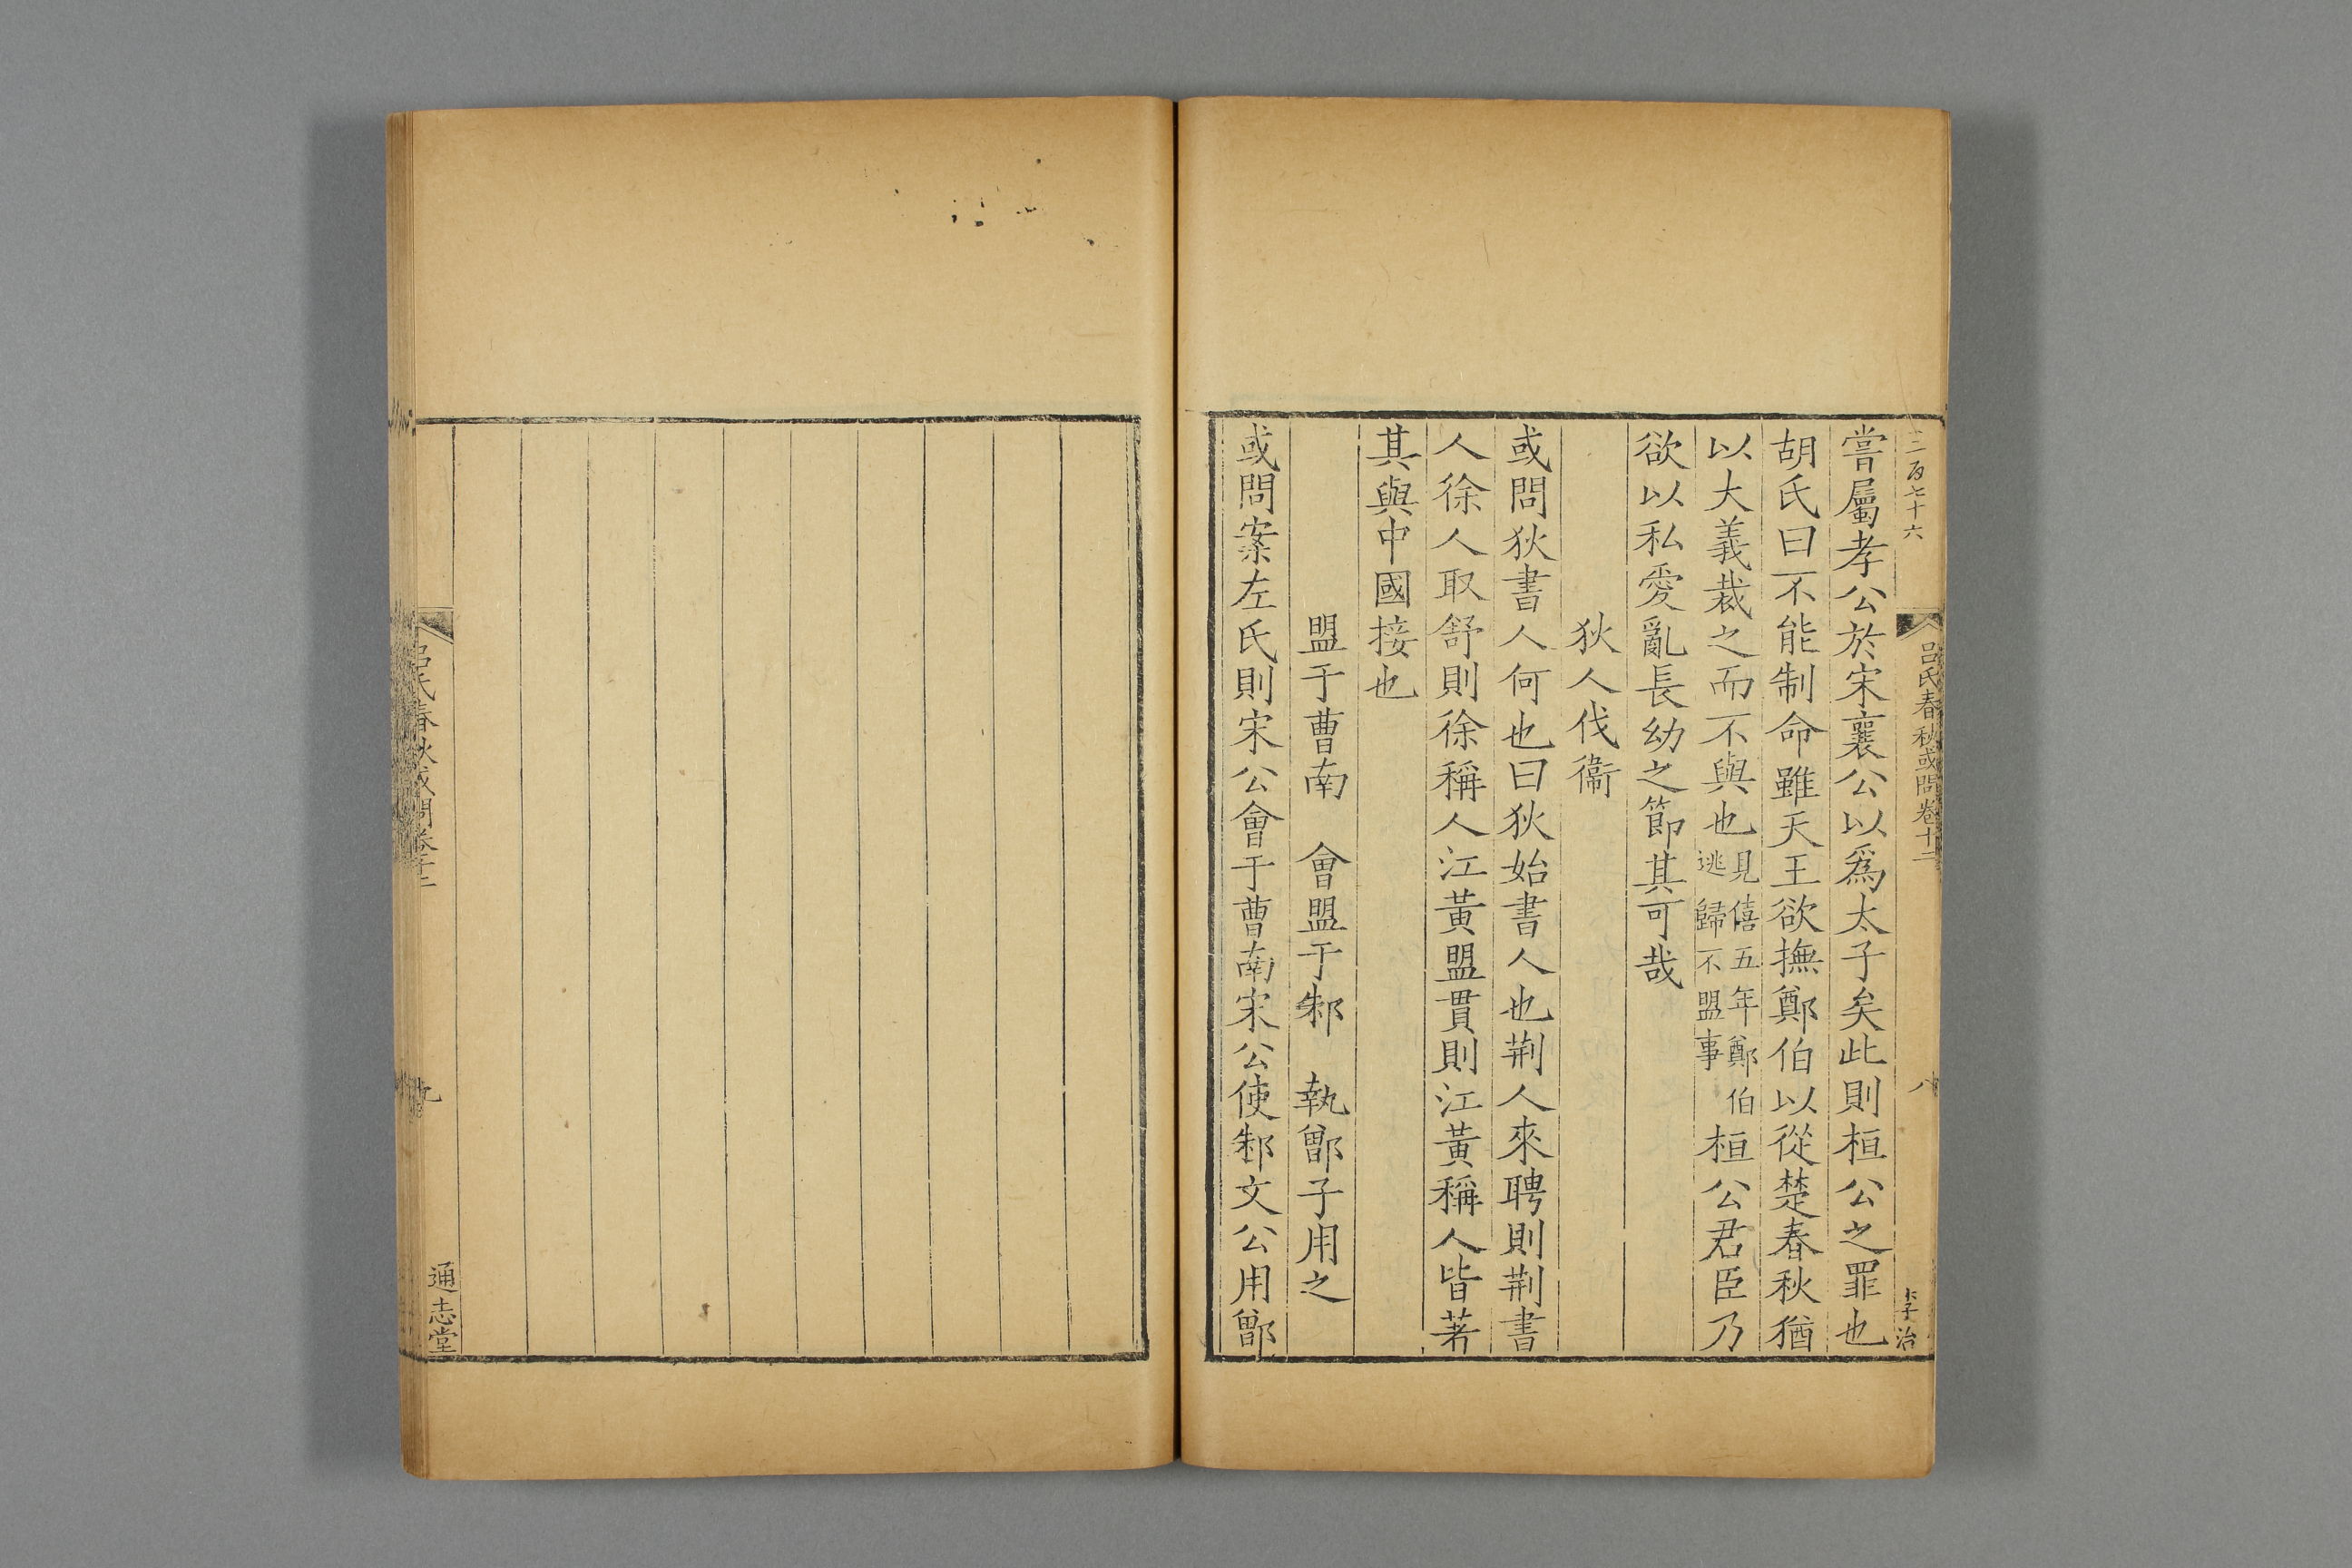 二百七十六
呂氏春秋或問卷十二
八
李治
嘗屬孝公於宋襄公以爲太子矣此則桓公之罪也
胡氏曰不能制命雖天王欲撫鄭伯以從楚春秋猶
以大義裁之而不與也見僖五年鄭伯逃歸不盟事桓公君臣乃
欲以私愛亂長幼之節其可哉
狄人伐衞
或問狄書人何也曰狄始書人也荆人來聘則荆書
人徐人取舒則徐稱人江黃盟貫則江黃稱人皆著
其與中國接也
盟于曹南　會盟于邾　執鄫子用之
或問案左氏則宋公會于曹南宋公使邾文公用鄫
呂氏春秋或問卷十二
九
通志堂